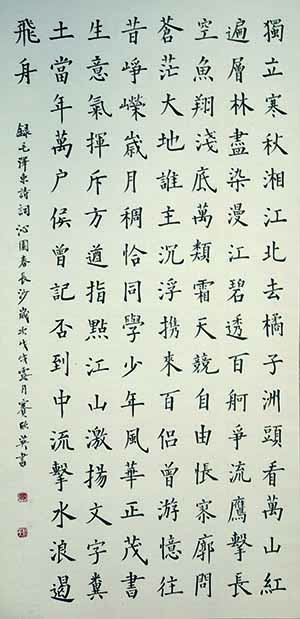 獨立寒秋湘江北去橘子洲頭看萬山紅
遍層林盡染漫江碧透百舸爭流鷹擊長
空魚翔淺底萬類霜天競自由悵寥廓問
蒼茫大地誰主沉浮携來百侣曾游憶往
昔崢嶸歲月稠恰同學少年風華正茂書
生意氣揮斥方遒指點江山激揚文字糞
土當年萬户侯曾記否到中流擊水浪遏
飛身
録毛澤東詩詞沁園春長沙歲次戊戌露月書